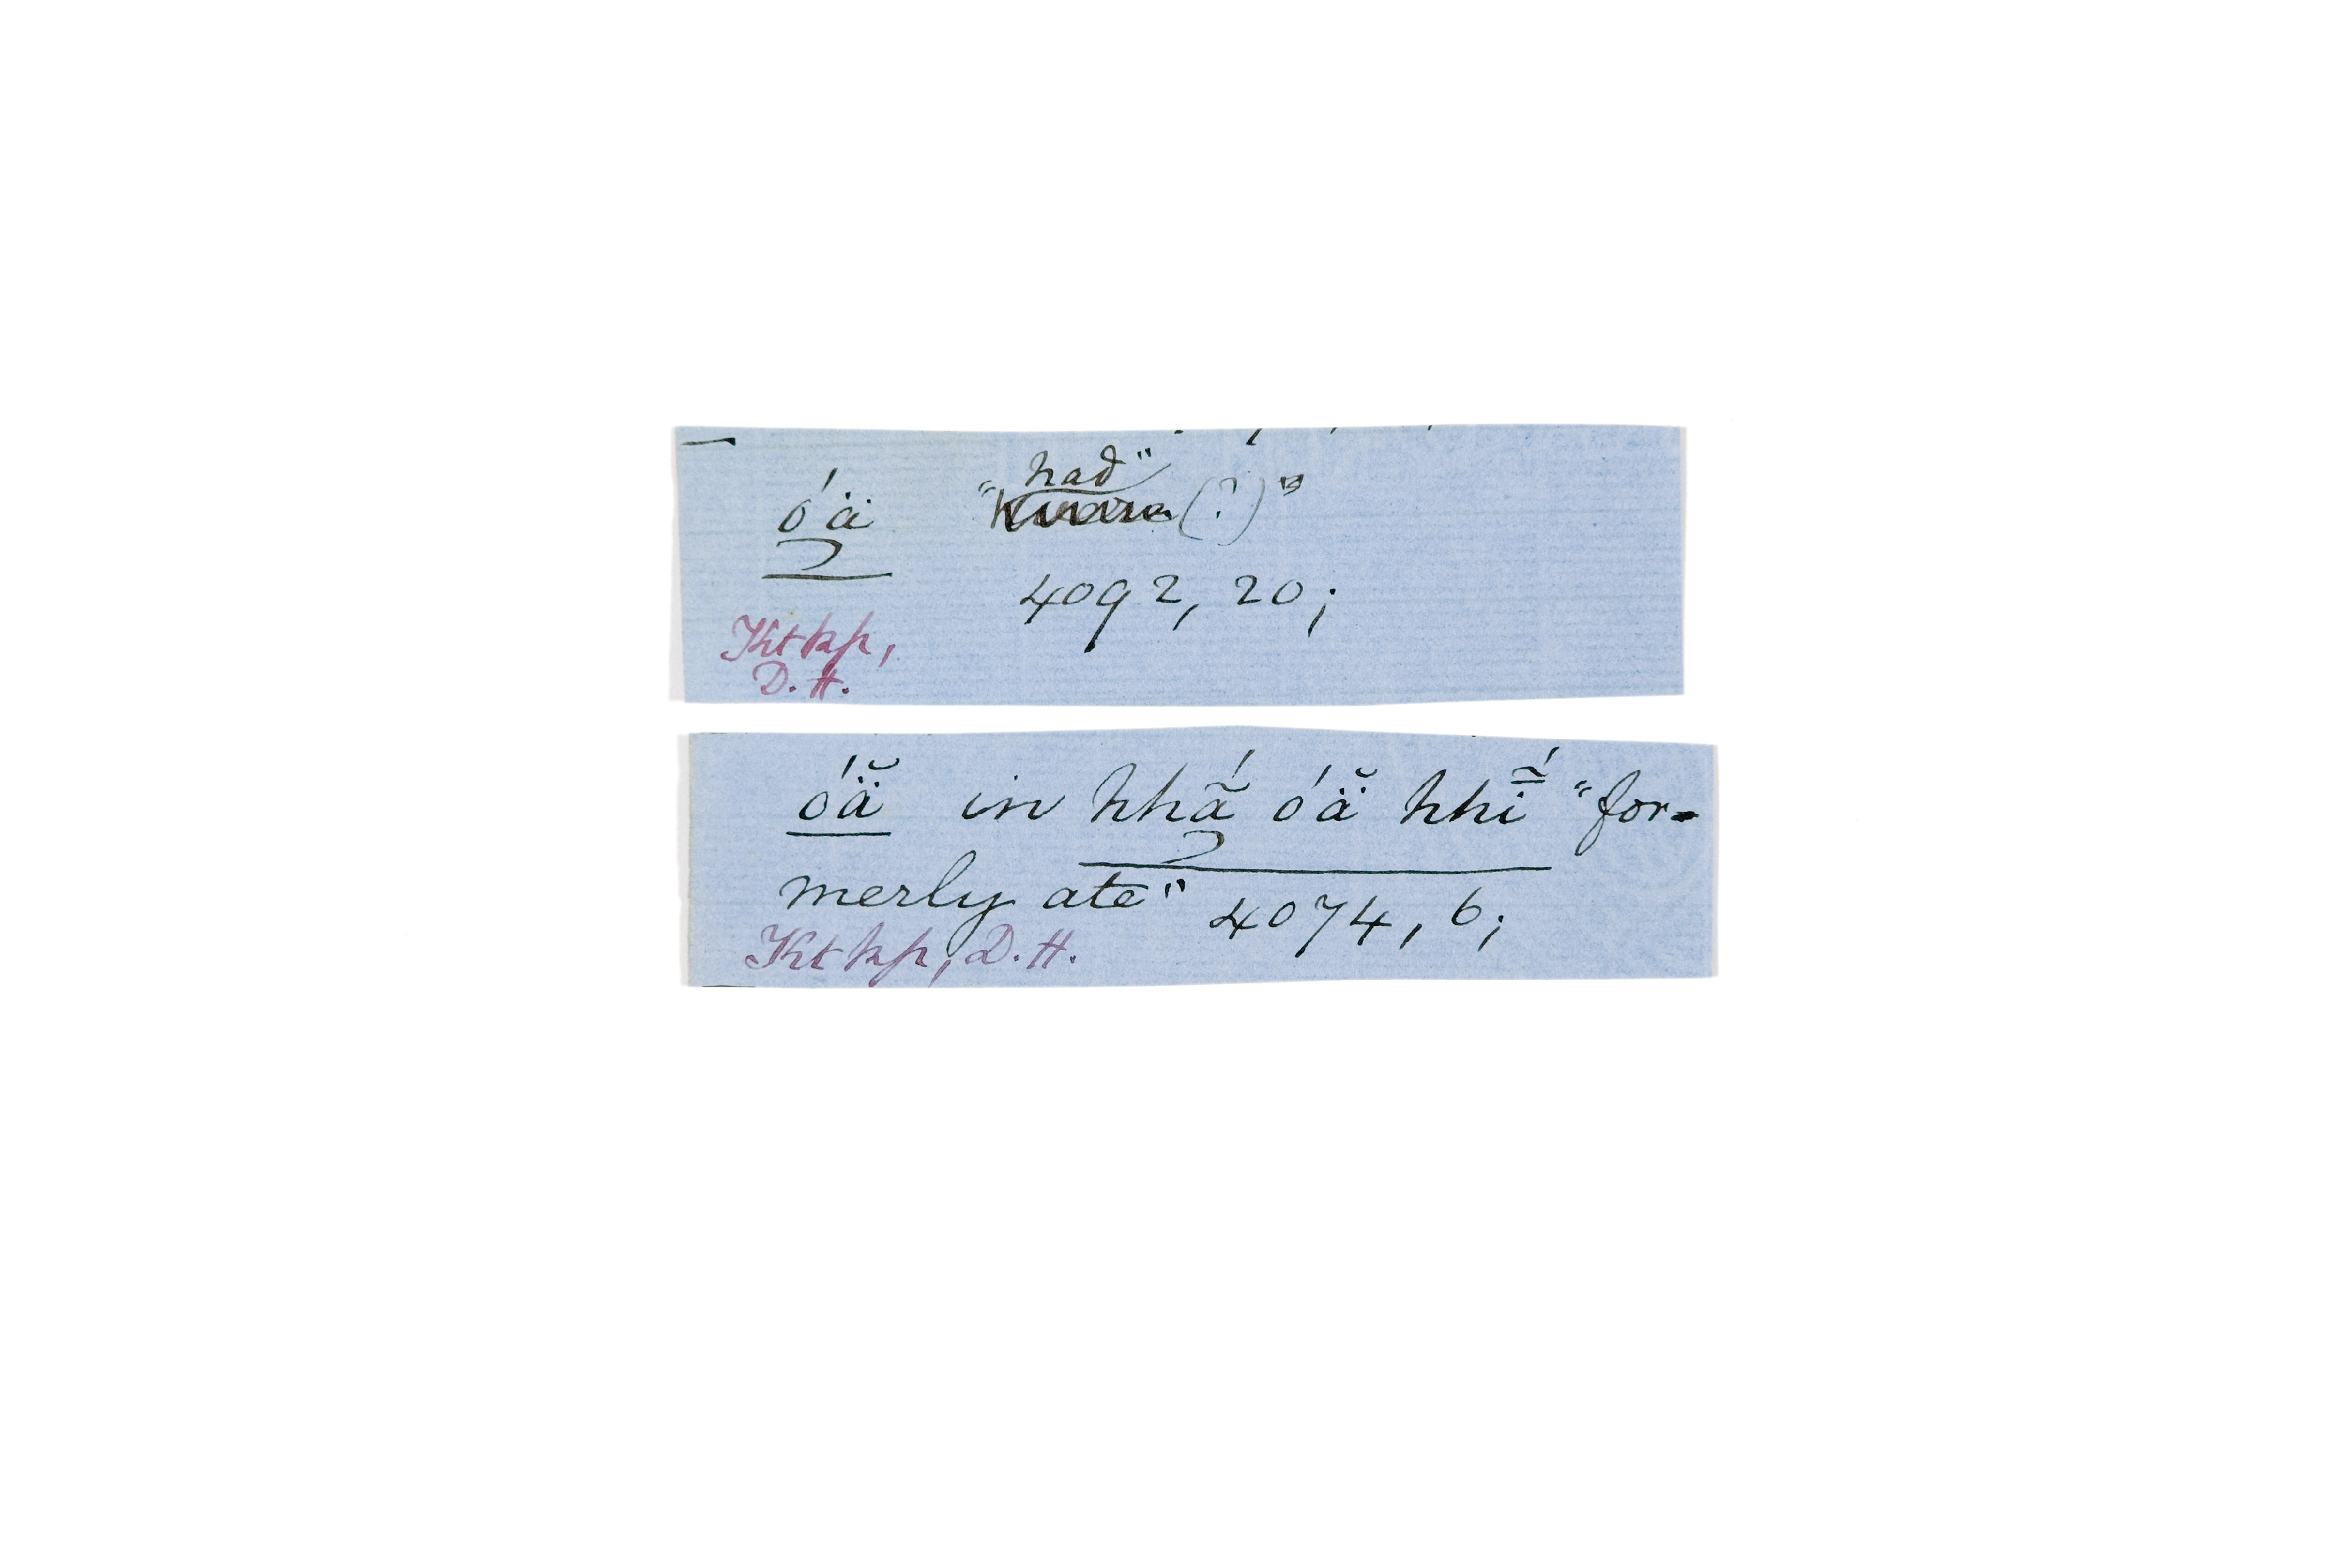 had"
óä " (?)"
4092, 20;
Ktkp,
D. H.
óä̆ in hhã́ óä̆ hhĩ̄́ "for=
merly ate" 4074, 6;
Ktkp, D. H.